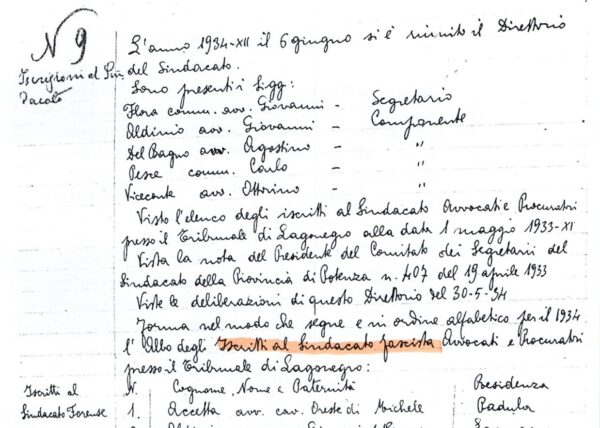 N 9
Iscrizioni al Sin-
dacato
L'anno 1934-XII il 6 giugno si è riunito il Direttorio
del Sindacato.
Sono presenti i Sigg:
Flora comm. avv. Giovanni - Segretario
Aldinio avv. Giovanni - Componente
Del Bagno avv. Agostino - "
Pesce comm. Carlo - "
Viceconte avv. Ottorino - "
Visto l'elenco degli iscritti al Sindacato Avvocati e Procuratori
presso il Tribunale di Lagonegro alla data 1 maggio 1933-XI
Vista la nota del Presidente del Comitato dei Segretarii del
Sindacato della Provincia di Potenza n. 407 del 19 aprile 1933
Viste le deliberazioni di questo Direttorio del 30-5-34
Forma nel modo che segue e in ordine alfabetico per il 1934
l'Albo degli Iscritti al Sindacato fascista Avvocati e Procuratori
presso il Tribunale di Lagonegro:
Iscritti al
Sindacato Forense
N. Cognome, Nome e Paternità Residenza
1. Accetta avv. cav. Oreste di Michele Padula
2.